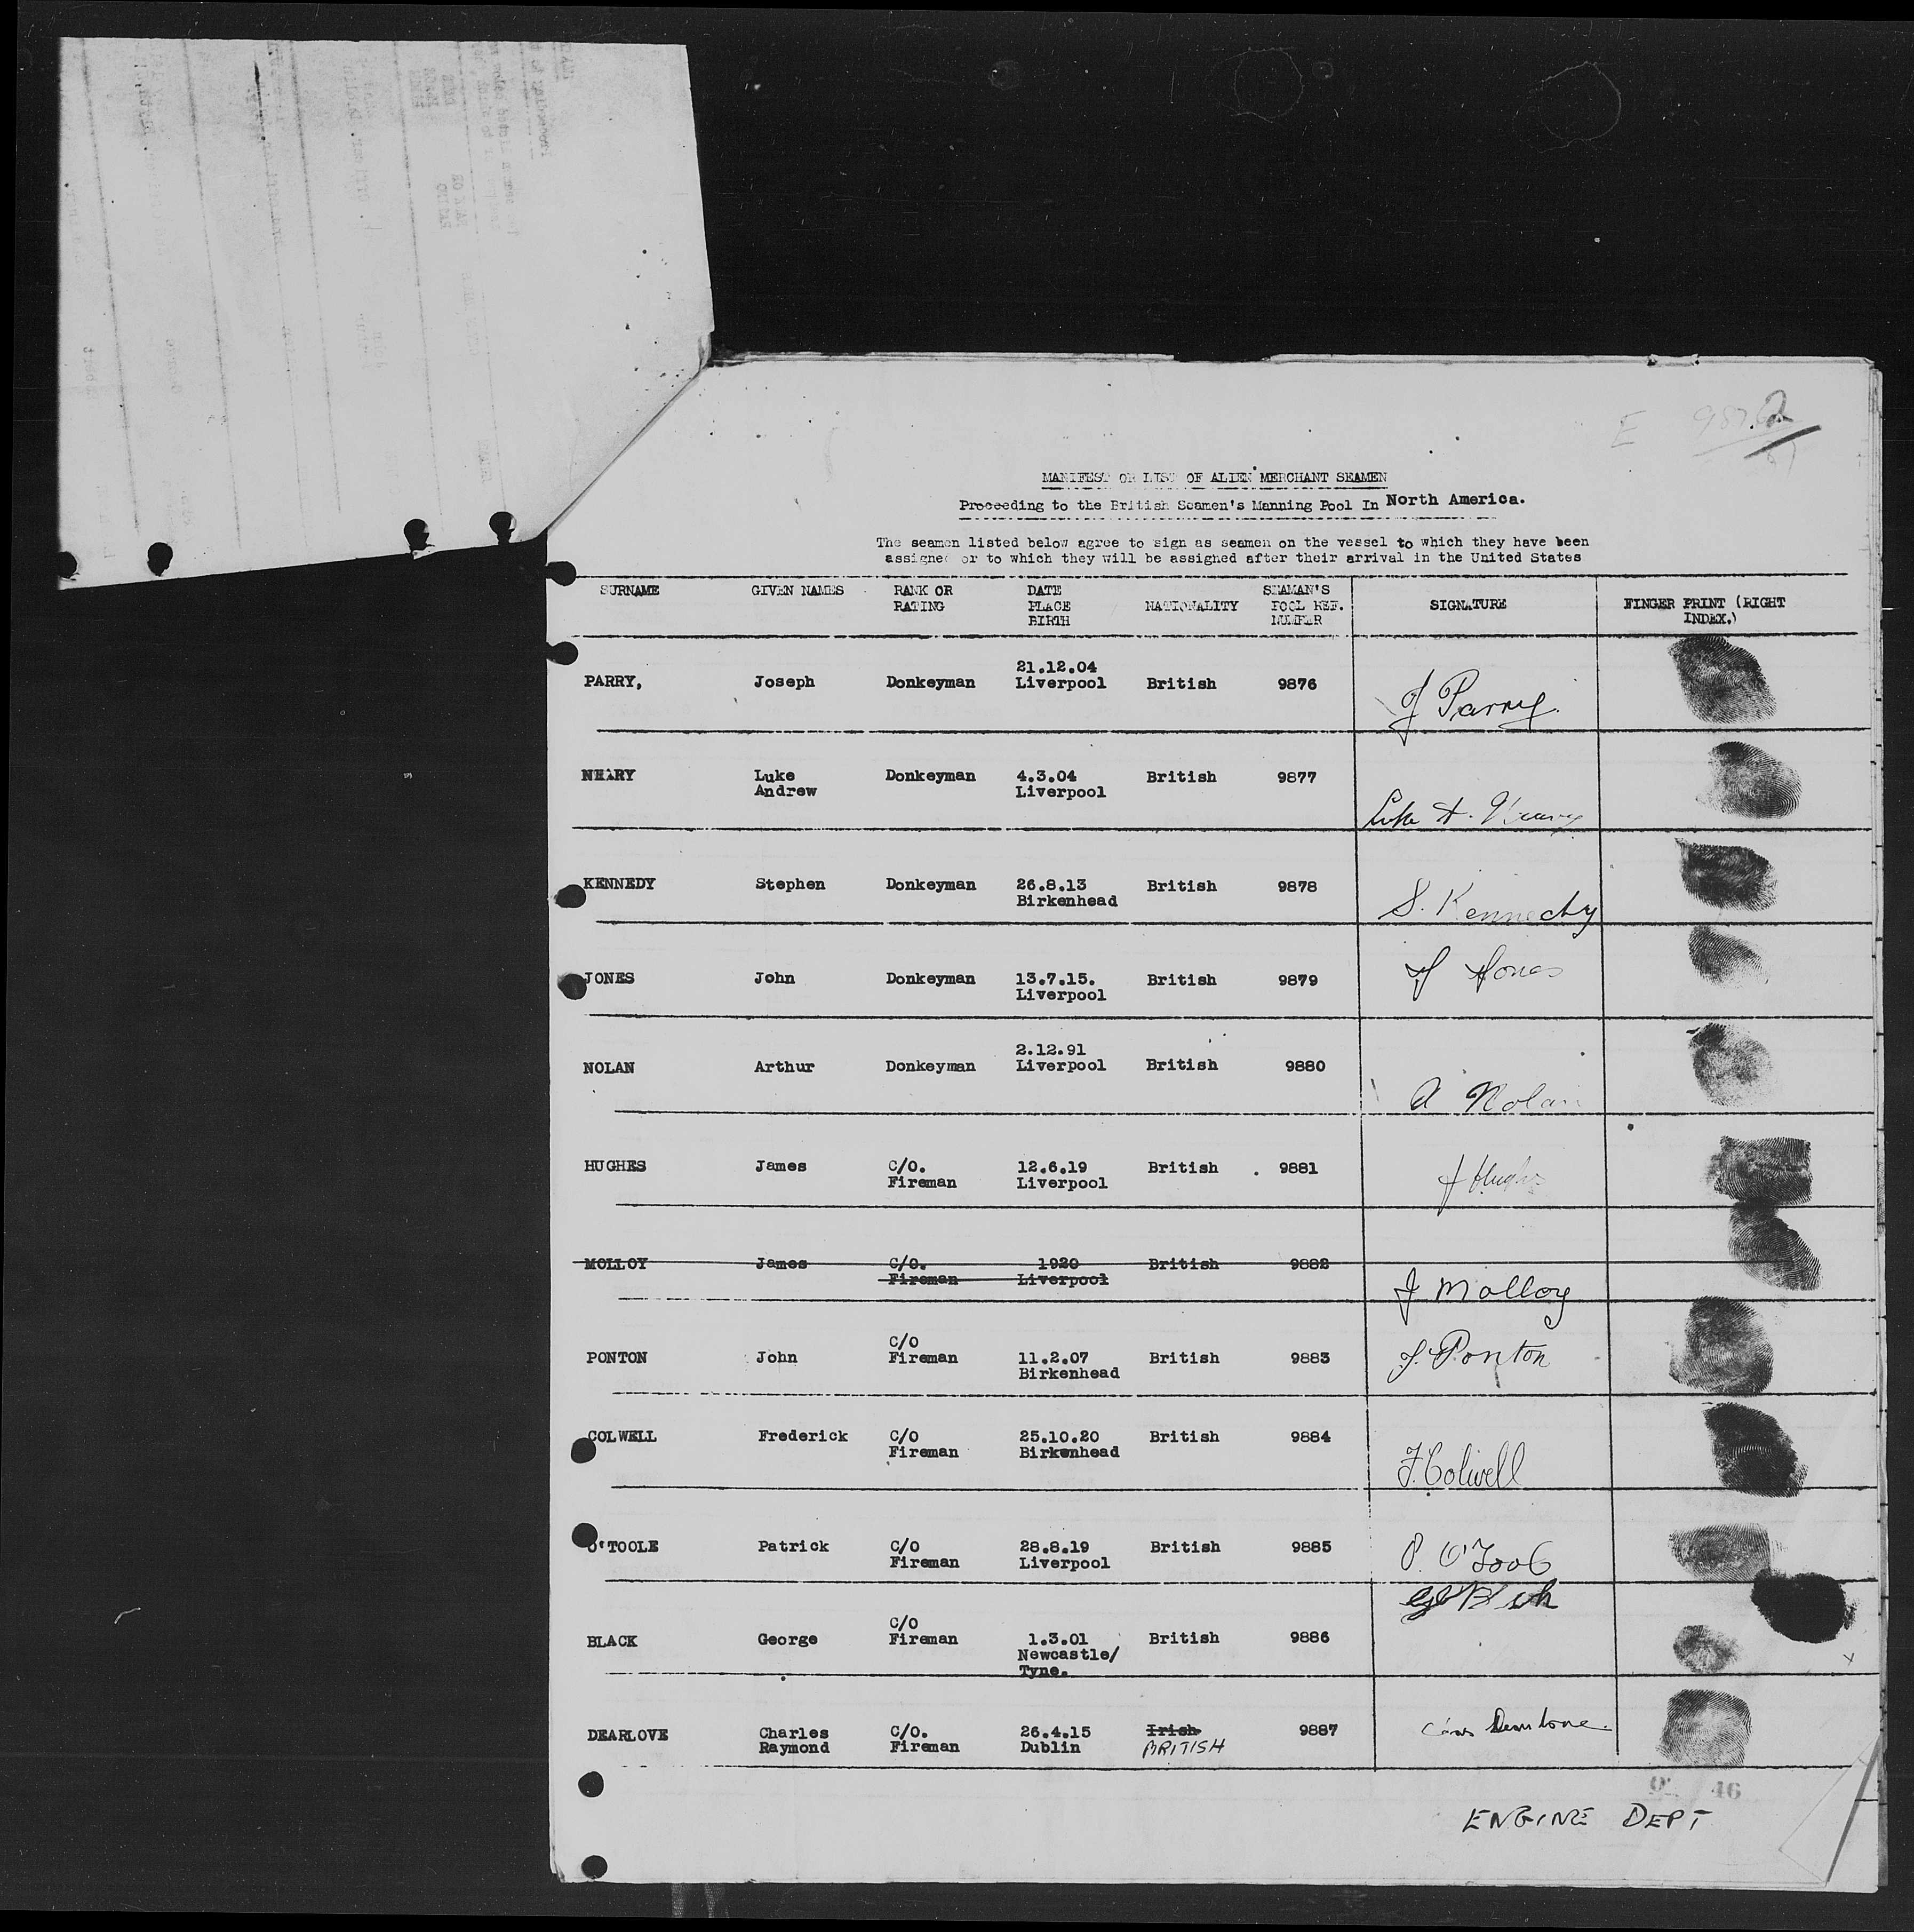 2
E
MANIFEST OR LIST OF ALIEN MERCHANT SEAMEN
Proceeding to the British Seamen's Manning Pool In North America.
The seamen listed below agree to sign as seamen on the vessel to which they have been
assigned or to which they will be assigned after their arrival in the United States
SURNAME GIVEN NAMES RANK OR RATING DATE PLACE BIRTH NATIONALITY SEAMAN'S POOL REF. NUMBER SIGNATURE FINGER PRINT (RIGHT INDEX.)
PARRY, Joseph Donkeyman 21.12.04 Liverpool British 9876 J Parry.
NEARY Luke Andrew Donkeyman 4.3.04 Liverpool British 9877 Luke A. Neary
KENNEDY Stephen Donkeyman 26.8.13 Birkenhead British 9878 S. Kennedy
JONES John Donkeyman 13.7.15. Liverpool British 9879 J Jones
NOLAN Arthur Donkeyman 2.12.91 Liverpool British 9880 A Nolan
HUGHES James C/O. Fireman 12.6.19 Liverpool British 9881 J Hughes
MOLLOY James C/O. Fireman 1920 Liverpool British 9882 J Molloy
PONTON John C/O Fireman 11.2.07 Birkenhead British 9883 J. Ponton
COLWELL Frederick C/O Fireman 25.10.20 Birkenhead British 9884 F. Colwell
O'TOOLE Patrick C/O Fireman 28.8.19 Liverpool British 9885 P. O'Toole
BLACK George C/O Fireman 1.3.01 Newcastle/ Tyne. British 9886
DEARLOVE Charles Raymond C/O. Fireman 26.4.15 Dublin Irish BRITISH 9887 Chas Dearlove.
46
ENGINE DEPT